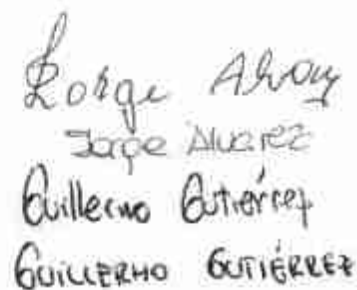 Jorge Alvarez
Guillermo Gutiérrez
GUILLERMO GUTIÉRREZ